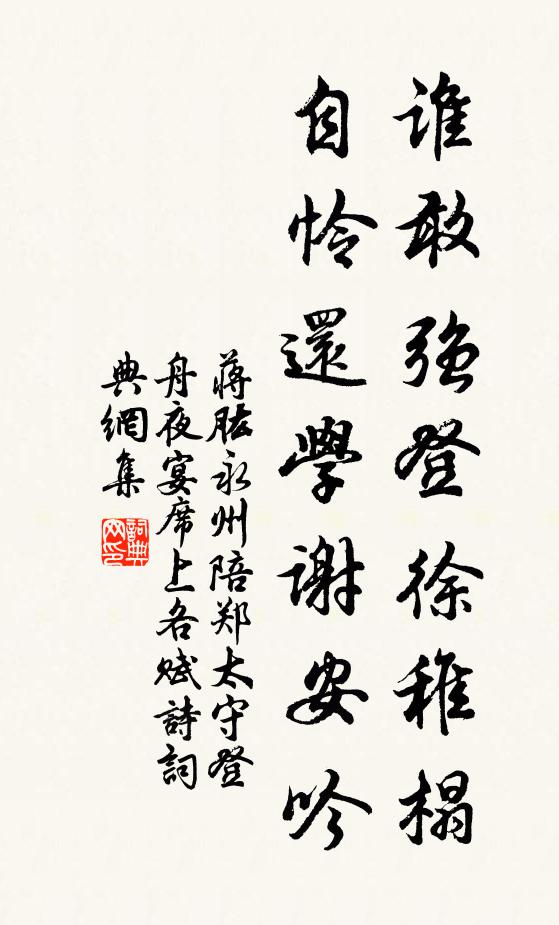 誰敢強登徐稚榻
自憐還學謝安吟
蔣肱永州陪郑太守登
舟夜宴席上各赋詩詞
典網集
詞典
网印